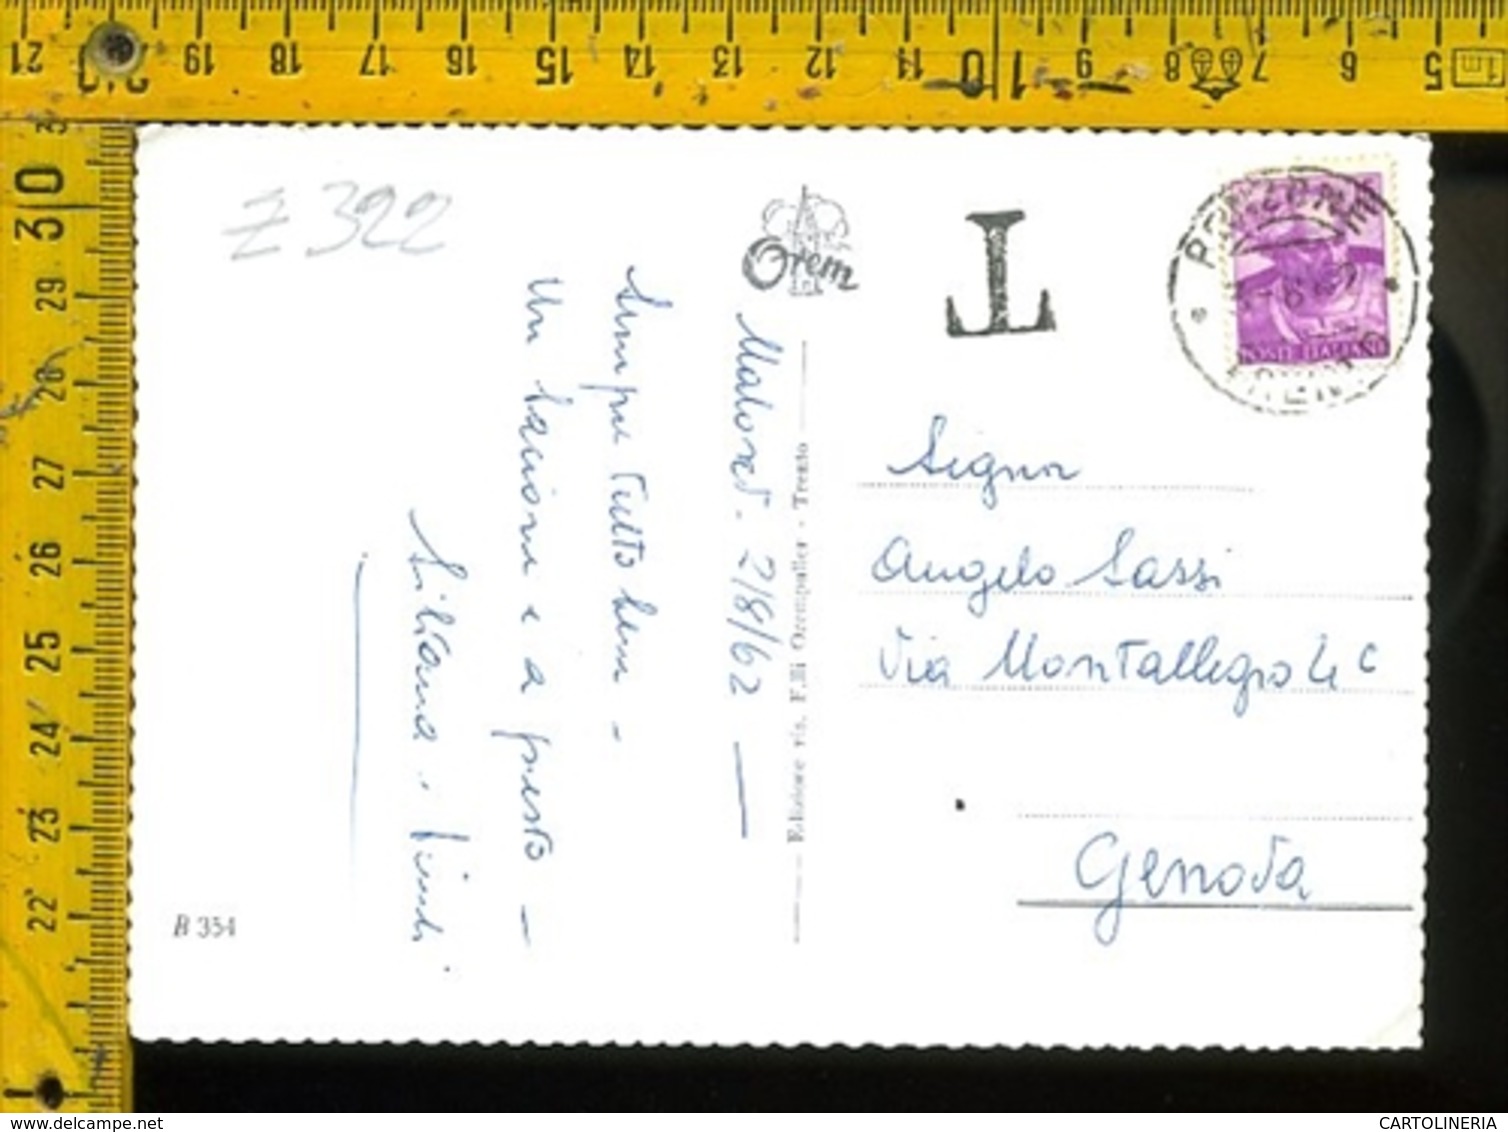 Z 322
Orem
T
POSTE ITALIANE
Malosco. 2/8/62
Sempre tutto bene -
Un bacione e a presto -
Liliana e
Edizione ris. F.lli Orempuller - Trento
Signor
Angelo Sassi
Via Montallegro 4 c
Genova
B 354
21 20 19 18 17 16 15 14 13 12 11 10 9 8 7 6 5 1m
30 29 28 27 26 25 24 23 22
CARTOLINERIA